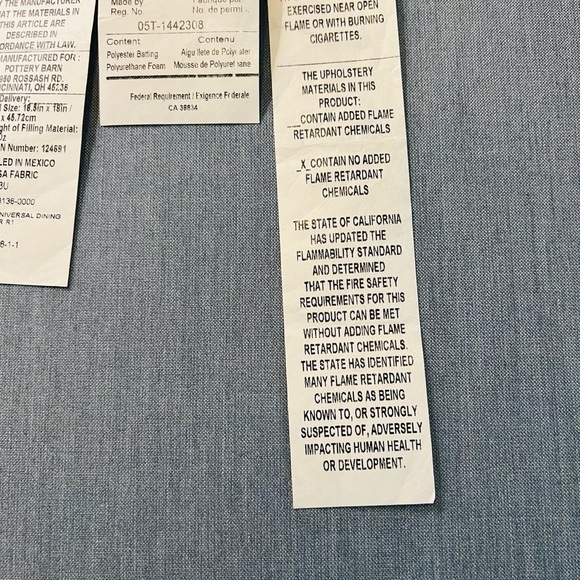 THE MANUFACTURER
THAT THE MATERIALS IN
THIS ARTICLE ARE
DESCRIBED IN
WITH LAW.
MANUFACTURED FOR:
POTTERY BARN
ROSSASH RD.
OH 45236
Delivery:
Size: 18.5in x 18in /
x 45.72cm
of Filling Material:
Number: 124691
IN MEXICO
FABRIC
3136-0000
DINING
R1
8-1-1
Made by
Reg. No. No. de permi
05T-1442308
Content Contenu
Polyester Batting de
Polyurethane Foam Mousse de
Federal Requirement / Exigence Federale
CA 38634
EXERCISED NEAR OPEN
FLAME OR WITH BURNING
CIGARETTES.
THE UPHOLSTERY
MATERIALS IN THIS
PRODUCT:
__CONTAIN ADDED FLAME
RETARDANT CHEMICALS
_X_CONTAIN NO ADDED
FLAME RETARDANT
CHEMICALS
THE STATE OF CALIFORNIA
HAS UPDATED THE
FLAMMABILITY STANDARD
AND DETERMINED
THAT THE FIRE SAFETY
REQUIREMENTS FOR THIS
PRODUCT CAN BE MET
WITHOUT ADDING FLAME
RETARDANT CHEMICALS.
THE STATE HAS IDENTIFIED
MANY FLAME RETARDANT
CHEMICALS AS BEING
KNOWN TO, OR STRONGLY
SUSPECTED OF, ADVERSELY
IMPACTING HUMAN HEALTH
OR DEVELOPMENT.